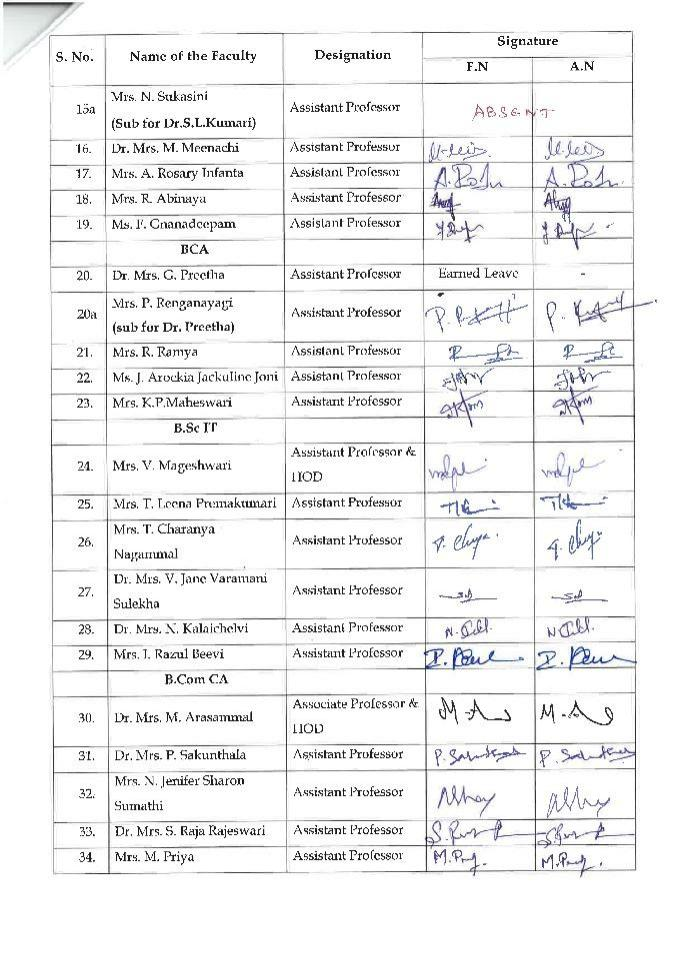 S. No. Name of the Faculty Designation Signature
F.N A.N
15a Mrs. N. Sukasini Assistant Professor ABSENT
(Sub for Dr.S.L.Kumari)
16. Dr. Mrs. M. Meenachi Assistant Professor
17. Mrs. A. Rosary Infanta Assistant Professor
18. Mrs. R. Abinaya Assistant Professor
19. Ms. F. Gnanadeepam Assistant Professor
BCA
20. Dr. Mrs. G. Preetha Assistant Professor Earned Leave -
20a Mrs. P. Renganayagi Assistant Professor
(sub for Dr. Preetha)
21. Mrs. R. Ramya Assistant Professor
22. Ms. J. Arockia Jackuline Joni Assistant Professor
23. Mrs. K.P.Maheswari Assistant Professor
B.Sc IT
24. Mrs. V. Mageshwari Assistant Professor &
HOD
25. Mrs. T. Leena Premakumari Assistant Professor
26. Mrs. T. Charanya Assistant Professor
Nagammal
27. Dr. Mrs. V. Jane Varamani Assistant Professor
Sulekha
28. Dr. Mrs. N. Kalaichelvi Assistant Professor
29. Mrs. I. Razul Beevi Assistant Professor
B.Com CA
30. Dr. Mrs. M. Arasammal Associate Professor &
HOD
31. Dr. Mrs. P. Sakunthala Assistant Professor
32. Mrs. N. Jenifer Sharon Assistant Professor
Sumathi
33. Dr. Mrs. S. Raja Rajeswari Assistant Professor
34. Mrs. M. Priya Assistant Professor